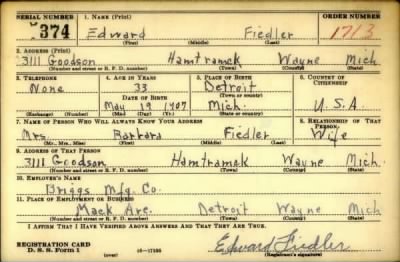 SERIAL NUMBER 1. NAME (Print) ORDER NUMBER
374 Edward Fiedler 1713
(First) (Middle) (Last)
2. ADDRESS (Print)
3111 Goodson Hamtramck Wayne Mich
(Number and street or R. F. D. number) (Town) (County) (State)
3. TELEPHONE 4. AGE IN YEARS 5. PLACE OF BIRTH 6. COUNTRY OF CITIZENSHIP
None 33 Detroit
DATE OF BIRTH (Town or county)
May 19 1907 Mich. U.S.A.
(Exchange) (Number) (Mo.) (Day) (Yr.) (State or country)
7. NAME OF PERSON WHO WILL ALWAYS KNOW YOUR ADDRESS 8. RELATIONSHIP OF THAT PERSON
Mrs. Barbara Fiedler Wife
(Mr., Mrs., Miss) (First) (Middle) (Last)
9. ADDRESS OF THAT PERSON
3111 Goodson Hamtramck Wayne Mich.
(Number and street or R. F. D. number) (Town) (County) (State)
10. EMPLOYER'S NAME
Briggs Mfg. Co.
11. PLACE OF EMPLOYMENT OR BUSINESS
Mack Ave. Detroit Wayne Mich
(Number and street or R. F. D. number) (Town) (County) (State)
I AFFIRM THAT I HAVE VERIFIED ABOVE ANSWERS AND THAT THEY ARE TRUE.
REGISTRATION CARD
D. S. S. Form 1 (over) Edward Fiedler
(Registrant's signature)